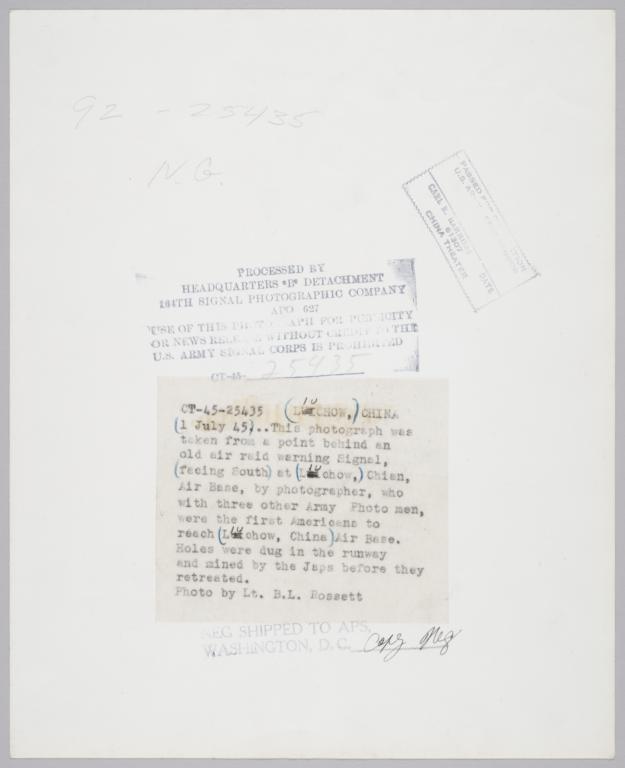 92 - 25435
N.G.
PASSED FOR
U.S. ARMY
CARL E. 
61307 DATE
CHINA THEATER
PROCESSED BY
HEADQUARTERS "B" DETACHMENT
164TH SIGNAL PHOTOGRAPHIC COMPANY
APO 627
USE OF THIS PHOTOGRAPH FOR PUBLICITY
OR NEWS RELEASE WITHOUT CREDIT TO THE
U.S. ARMY SIGNAL CORPS IS PROHIBITED
CT-45- 25435
CT-45-25435 (LIUCHOW,) CHINA
(1 July 45)..This photograph was
taken from a point behind an
old air raid warning Signal,
(facing South) at (Liuchow,) Chian,
Air Base, by photographer, who
with three other Army Photo men,
were the first Americans to
reach (Liuchow, China) Air Base.
Holes were dug in the runway
and mined by the Japs before they
retreated.
Photo by Lt. B.L. Rossett
NEG SHIPPED TO APS,
WASHINGTON, D.C. Copy Neg